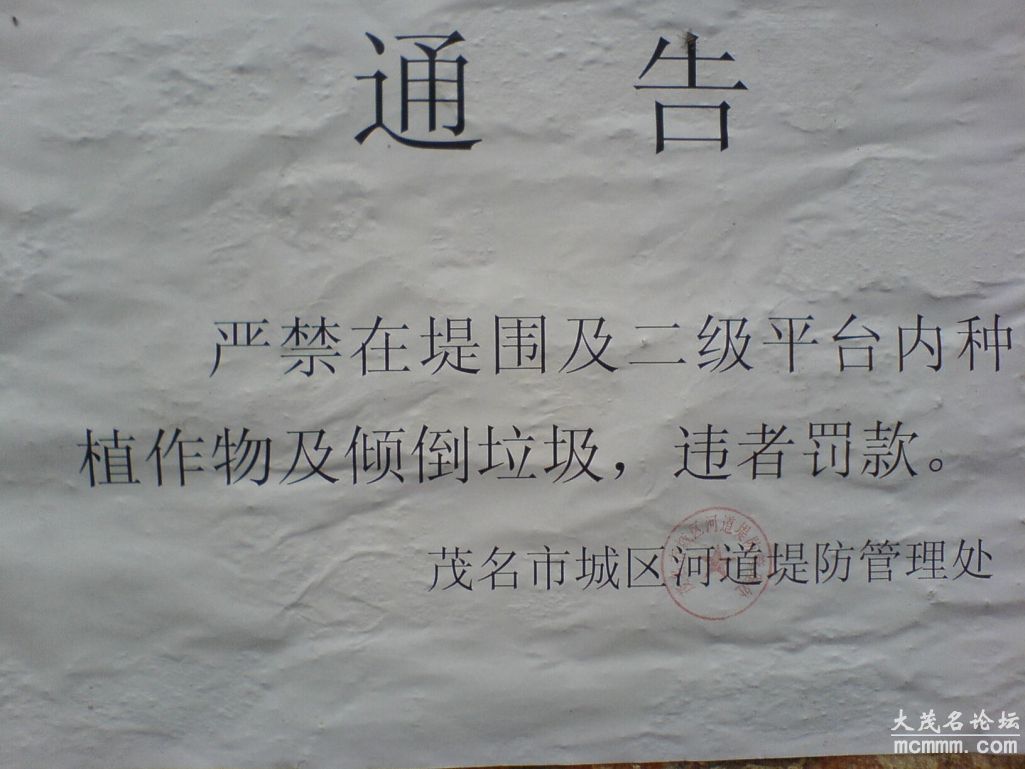 通 告
严禁在堤围及二级平台内种
植作物及倾倒垃圾，违者罚款。
茂名市城区河道堤防管理处
大茂名论坛
mcmmm.com